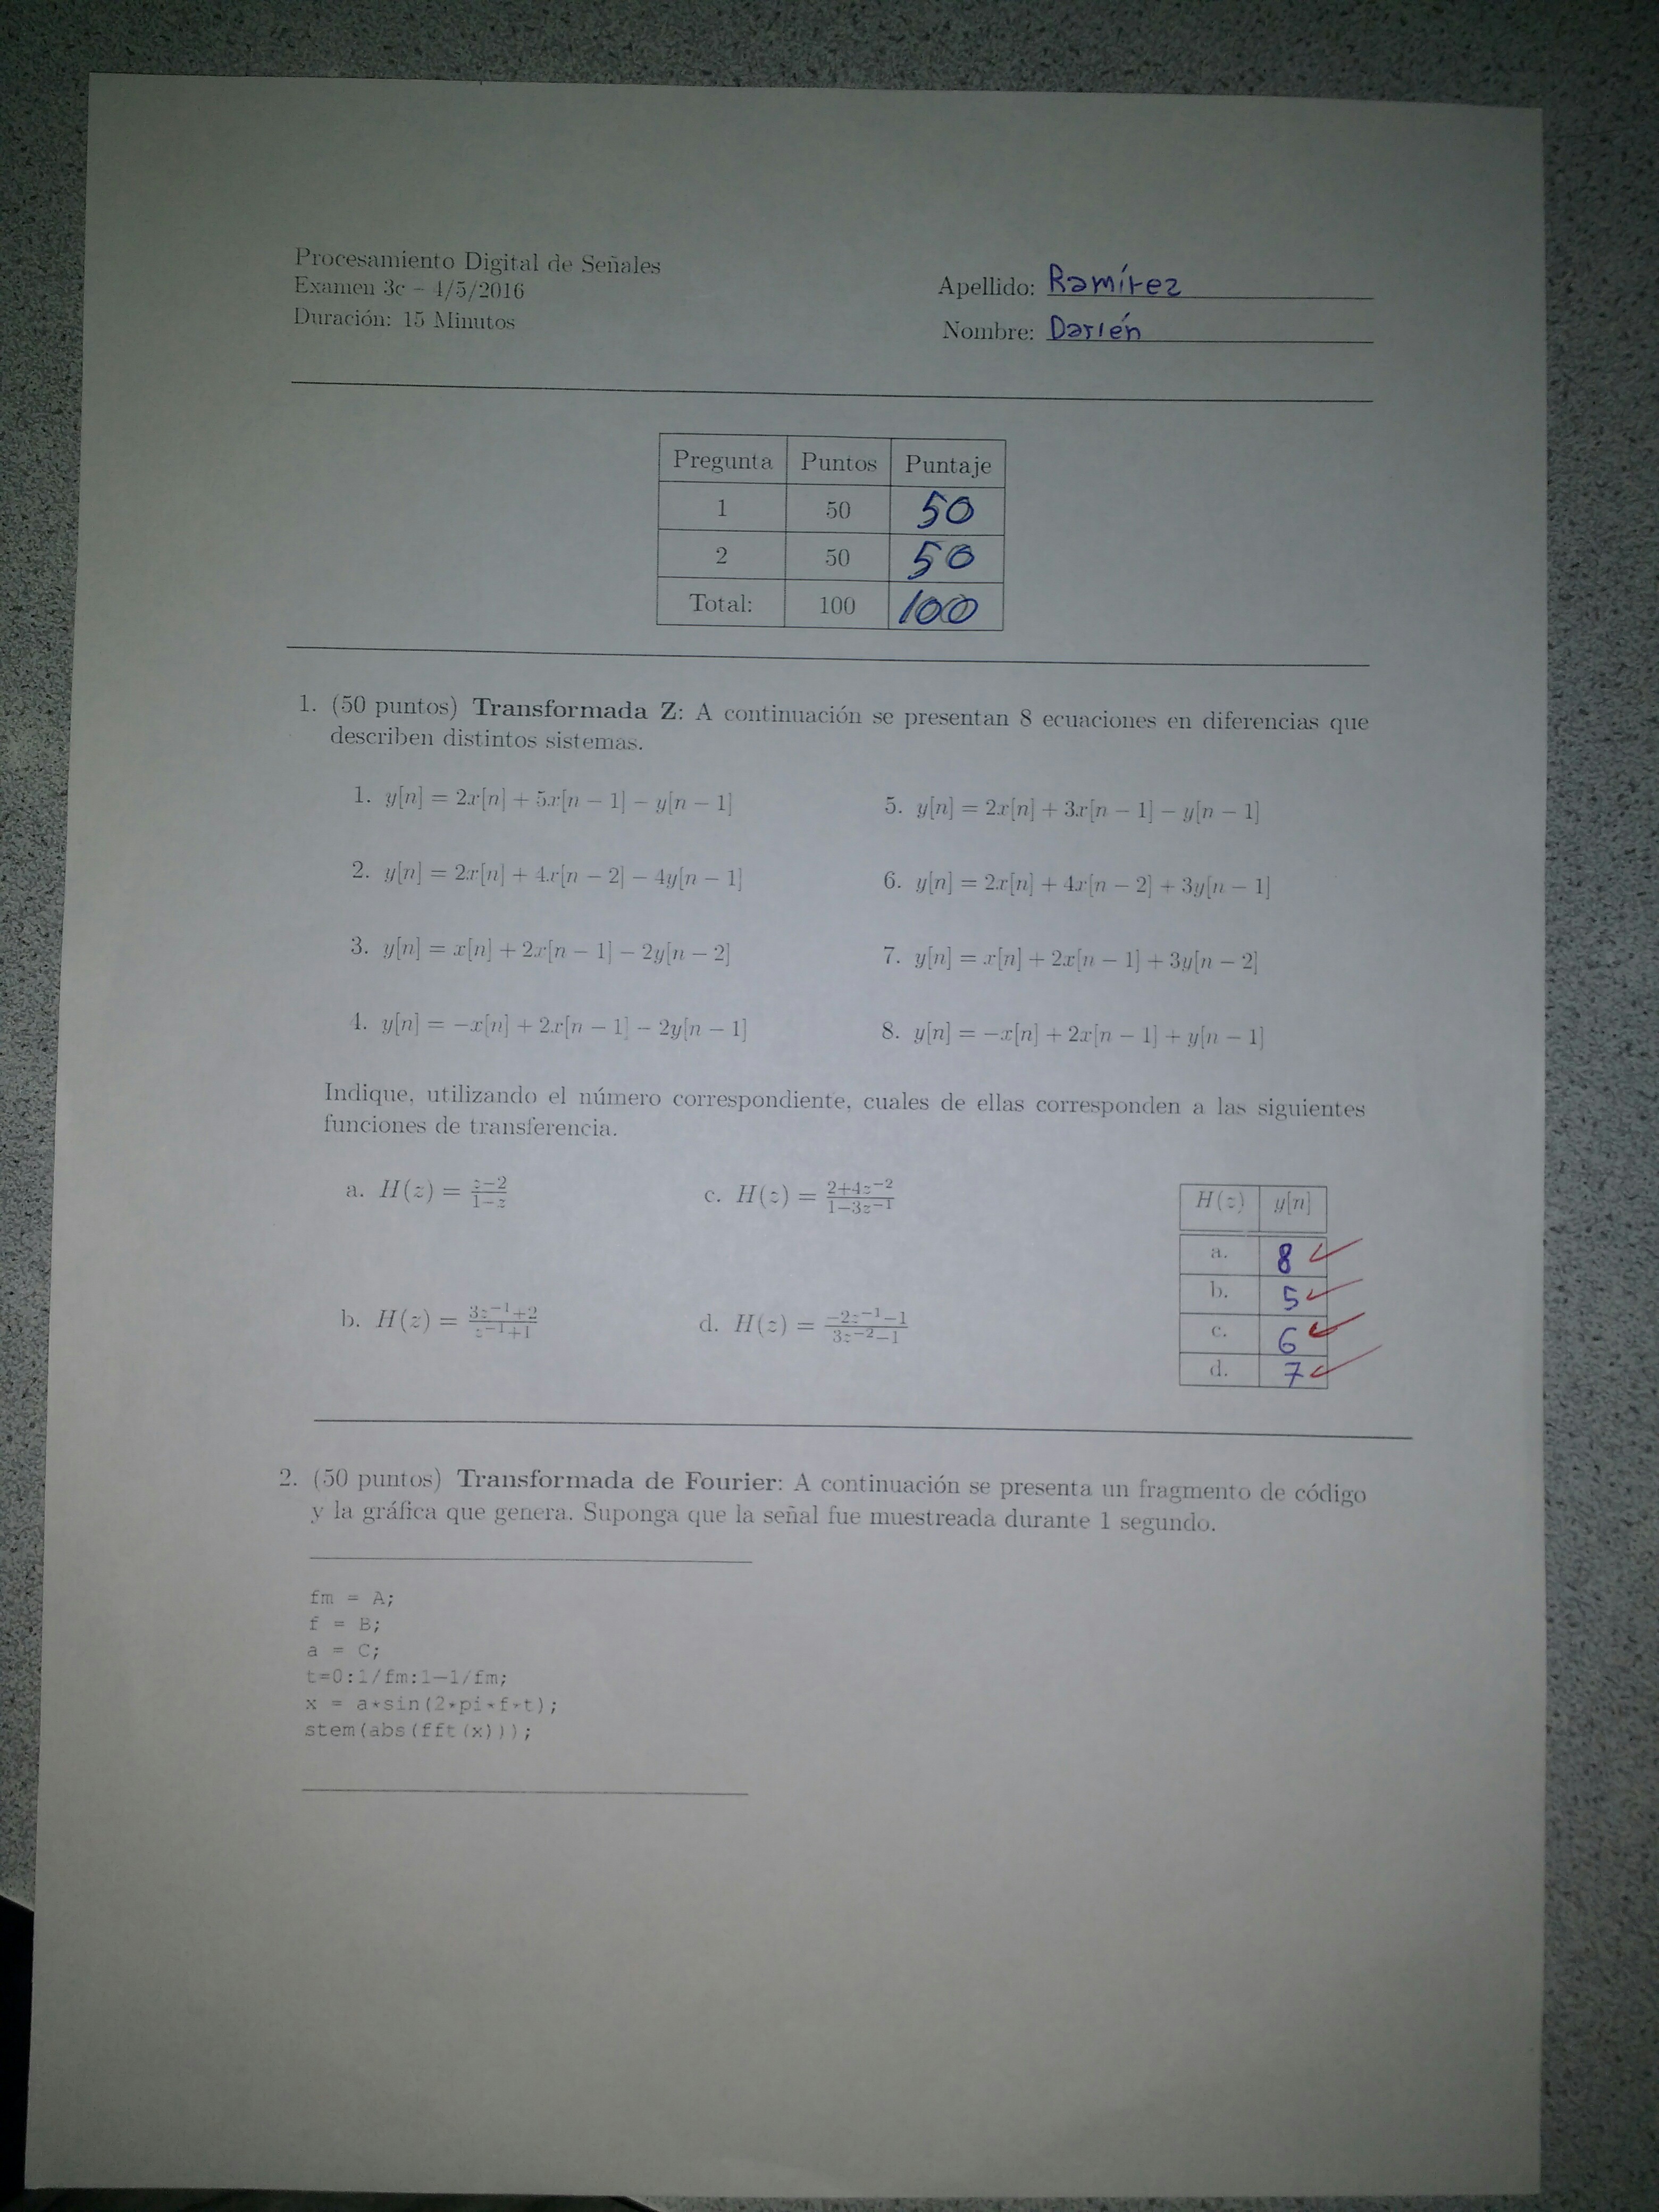 Procesamiento Digital de Señales
Examen 3c – 4/5/2016
Duración: 15 Minutos
Apellido: Ramírez
Nombre: Darién
Pregunta Puntos Puntaje
1 50 50
2 50 50
Total: 100 100
1. (50 puntos) Transformada Z: A continuación se presentan 8 ecuaciones en diferencias que
describen distintos sistemas.
1. y[n] = 2x[n] + 5x[n − 1] − y[n − 1]
2. y[n] = 2x[n] + 4x[n − 2] − 4y[n − 1]
3. y[n] = x[n] + 2x[n − 1] − 2y[n − 2]
4. y[n] = −x[n] + 2x[n − 1] − 2y[n − 1]
5. y[n] = 2x[n] + 3x[n − 1] − y[n − 1]
6. y[n] = 2x[n] + 4x[n − 2] + 3y[n − 1]
7. y[n] = x[n] + 2x[n − 1] + 3y[n − 2]
8. y[n] = −x[n] + 2x[n − 1] + y[n − 1]
Indique, utilizando el número correspondiente, cuales de ellas corresponden a las siguientes
funciones de transferencia.
a. H(z) = (z−2)/(1−z)
b. H(z) = (3z^−1+2)/(z^−1+1)
c. H(z) = (2+4z^−2)/(1−3z^−1)
d. H(z) = (−2z^−1−1)/(3z^−2−1)
H(z) y[n]
a. 8
b. 5
c. 6
d. 7
2. (50 puntos) Transformada de Fourier: A continuación se presenta un fragmento de código
y la gráfica que genera. Suponga que la señal fue muestreada durante 1 segundo.
fm = A;
f = B;
a = C;
t=0:1/fm:1−1/fm;
x = a*sin(2*pi*f*t);
stem(abs(fft(x)));